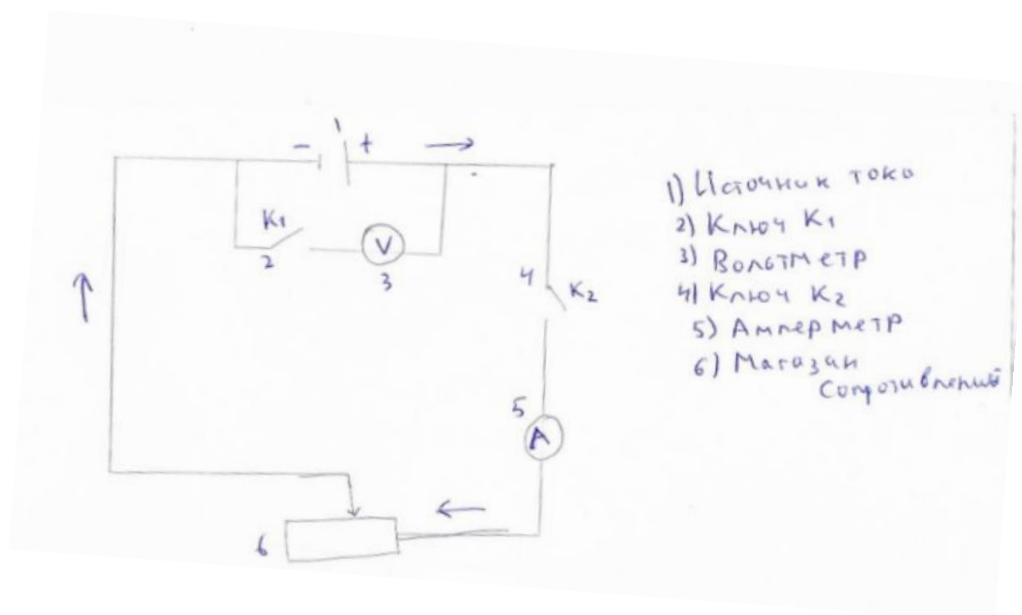 1
- +
K1
2
V
3
4
K2
5
A
6
1) Источник тока
2) Ключ K1
3) Вольтметр
4) Ключ K2
5) Амперметр
6) Магазин
сопротивлений